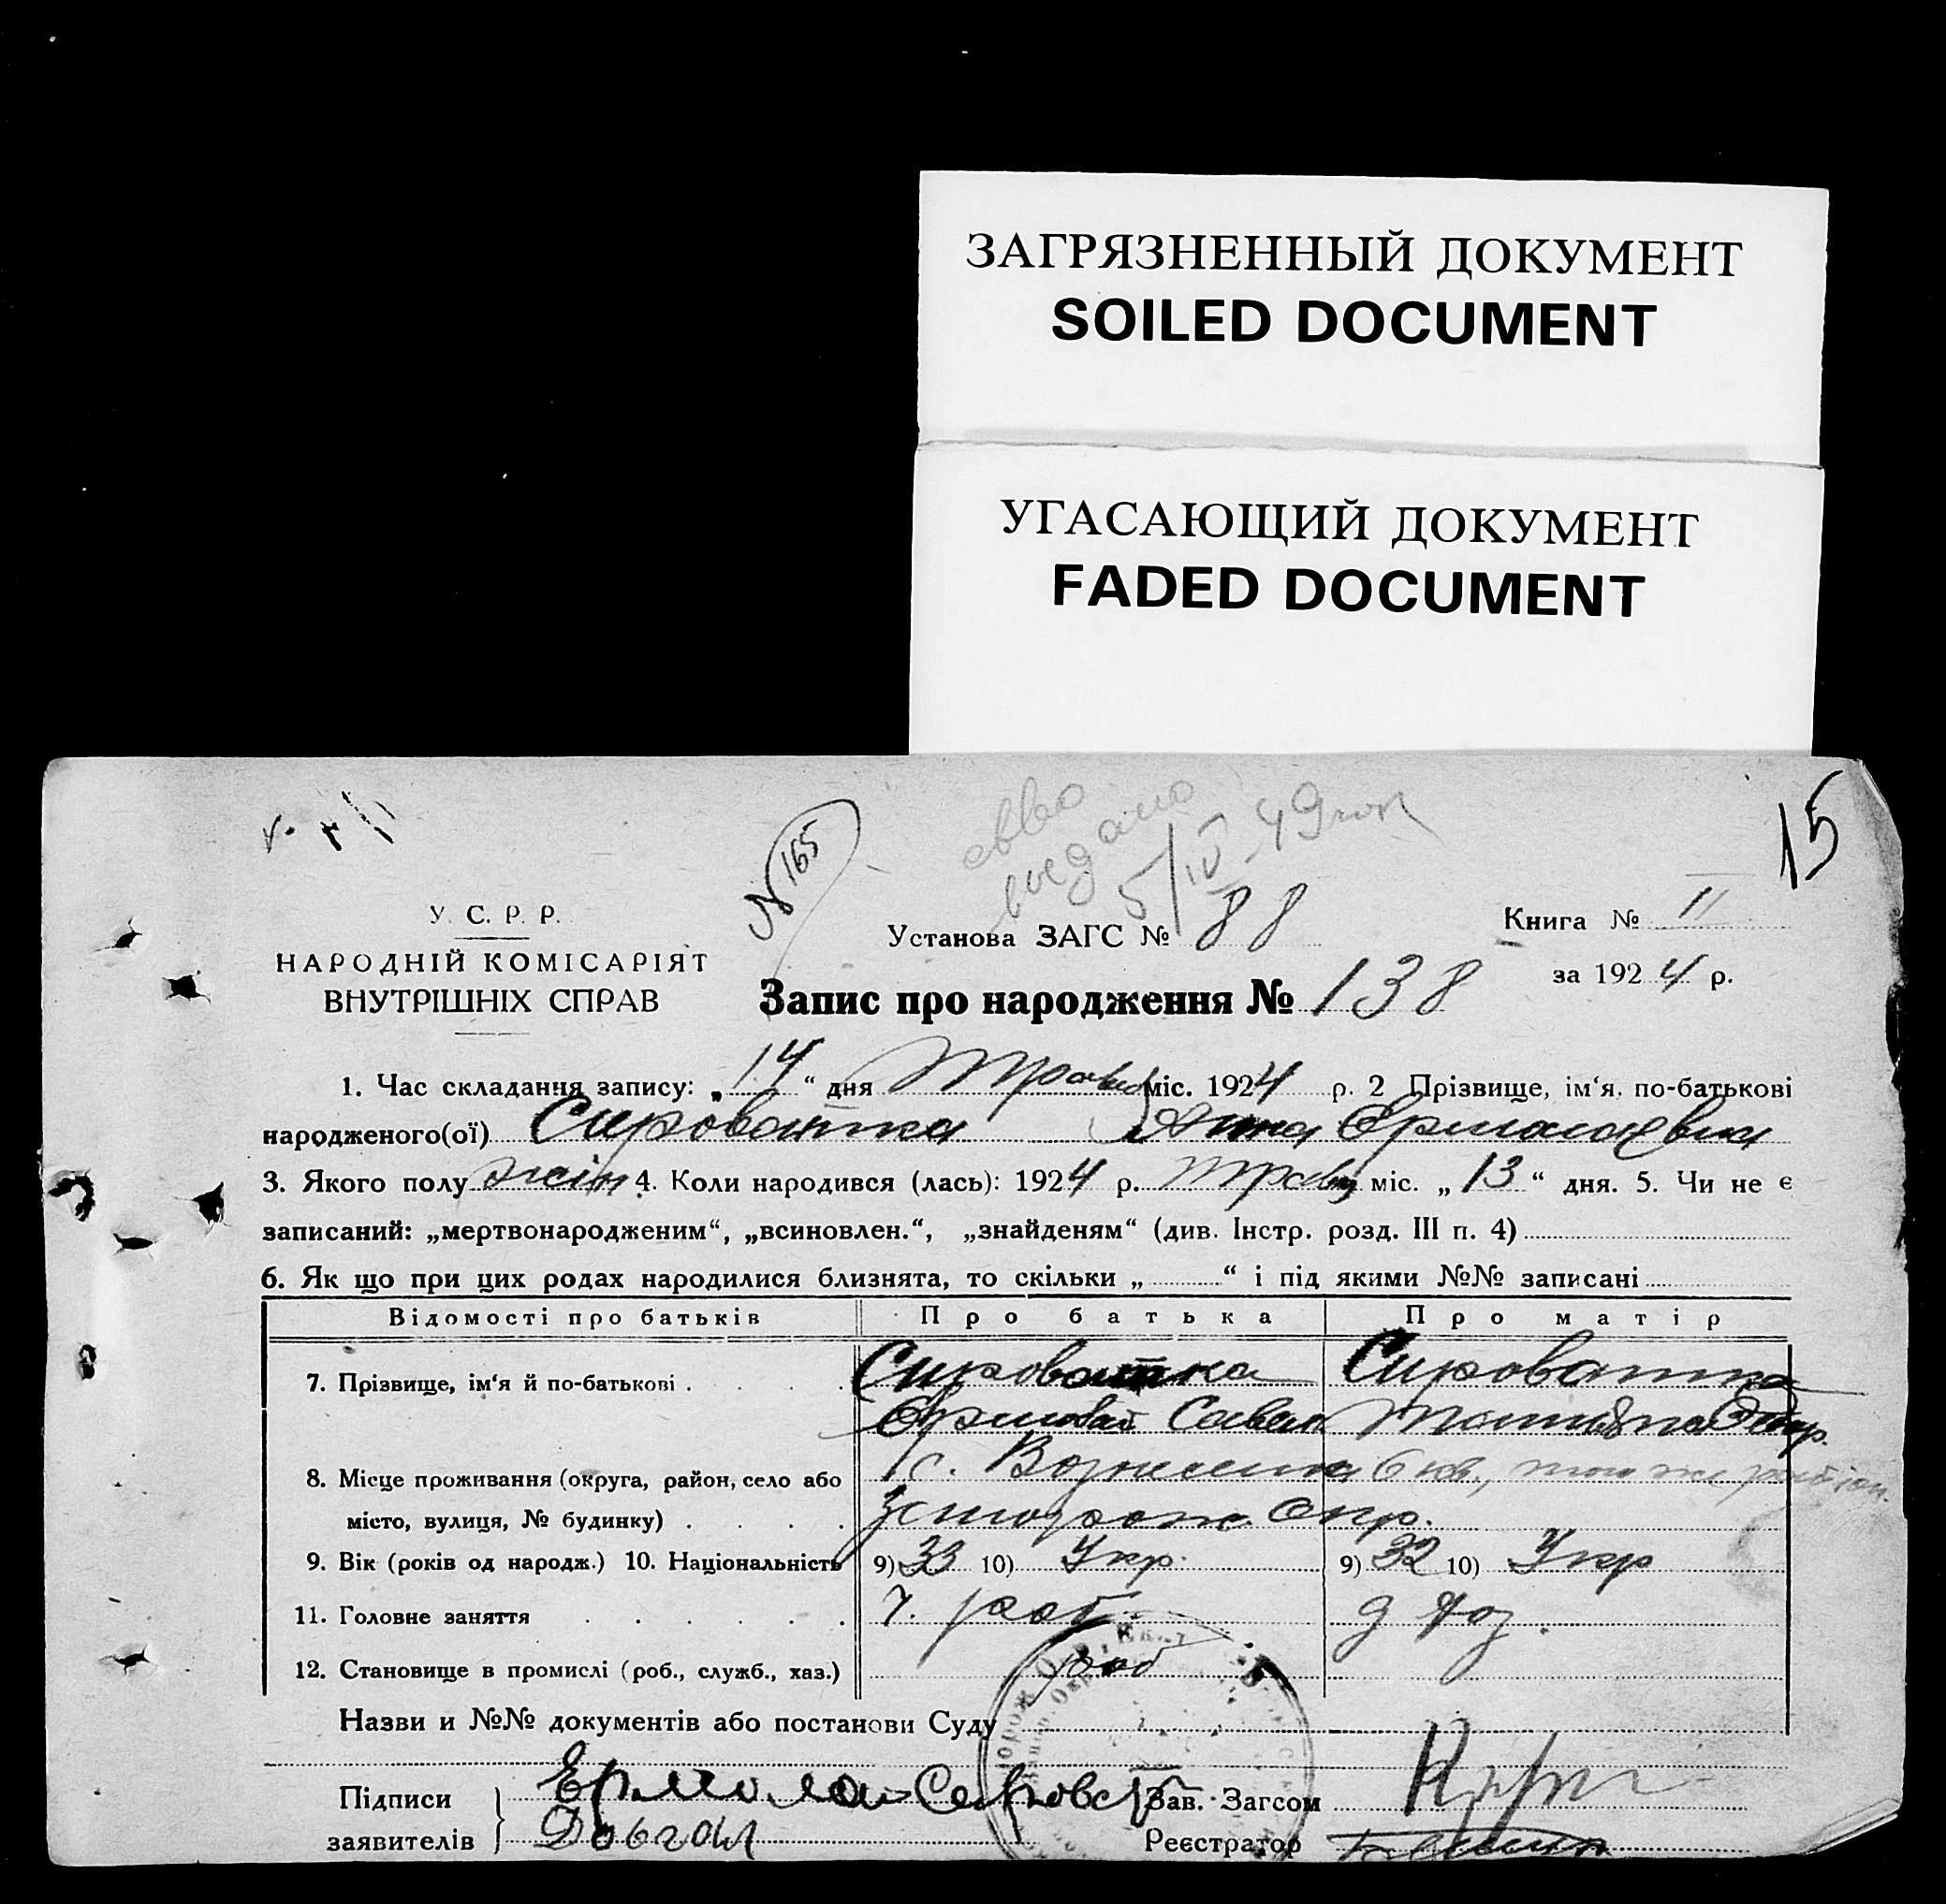 ЗАГРЯЗНЕННЫЙ ДОКУМЕНТ
SOILED DOCUMENT
УГАСАЮЩИЙ ДОКУМЕНТ
FADED DOCUMENT
15
№ 165
5/IV-49
У. С. Р. Р.
НАРОДНІЙ КОМІСАРІЯТ
ВНУТРІШНІХ СПРАВ
Установа ЗАГС № 88
Книга № II
за 1924 р.
Запис про народження № 138
1. Час складання запису: „14“ дня Травня міс. 1924 р. 2 Прізвище, ім‘я, по-батькові
народженого(ої) Сироватка Анна Ермолаевна
3. Якого полу жін 4. Коли народився (лась): 1924 р. травня міс. „13“ дня. 5. Чи не є
записаний: „мертвонародженим“, „всиновлен.“, „знайденям“ (див. Інстр. розд. III п. 4)
6. Як що при цих родах народилися близнята, то скільки „ “ і під якими №№ записані
Відомості про батьків Про батька Про матір
7. Прізвище, ім‘я й по-батькові Сироватка Сироватка
8. Місце проживання (округа, район, село або с. Вознесенка
місто, вулиця, № будинку) Запорож. Окр.
9. Вік (років од народж.) 10. Національність 9) 33 10) Укр. 9) 32 10) Укр
11. Головне заняття ч. роб. д хоз.
12. Становище в промислі (роб., служб., хаз.) роб
Назви и №№ документів або постанови Суду
Підписи Ермолаи Зав. Загсом
заявителів Довгаш Реєстратор